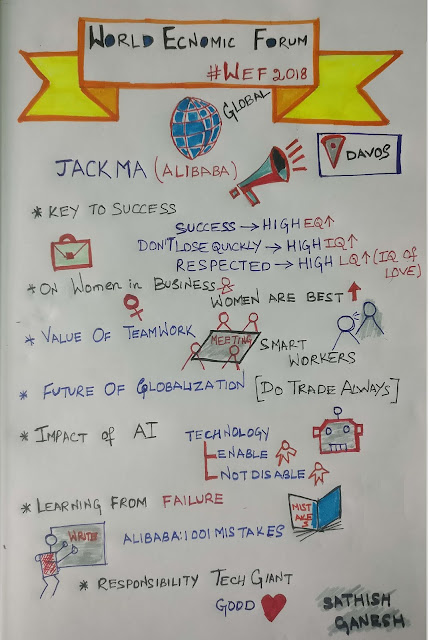 WORLD ECNOMIC FORUM
#WEF2018
GLOBAL
JACK MA (ALIBABA)
DAVOS
* KEY TO SUCCESS
SUCCESS → HIGH EQ↑
DON'T LOSE QUICKLY → HIGH IQ↑
RESPECTED → HIGH LQ↑ (IQ of LOVE)
* ON WOMEN in BUSINESS
WOMEN ARE BEST ↑
* VALUE OF TEAMWORK
MEETING
SMART
WORKERS
* FUTURE OF GLOBALIZATION [DO TRADE ALWAYS]
* IMPACT of AI
TECHNOLOGY
ENABLE
NOT DISABLE
* LEARNING FROM FAILURE
MIST
AKE
S
WRITE
ALIBABA: 1001 MISTAKES
* RESPONSIBILITY TECH GIANT
GOOD
SATHISH
GANESH